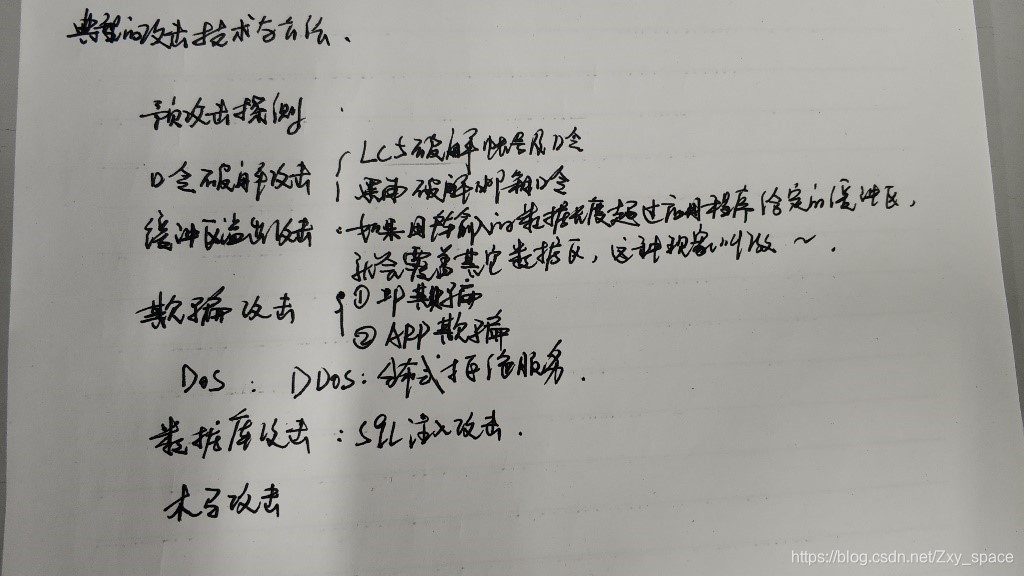 典型的攻击技术与方法.
预攻击探测
口令破解攻击
LC5破解帐号及口令
黑雨破解邮箱口令
缓冲区溢出攻击
·如果用户输入的数据长度超过应用程序给定的缓冲区,
就会覆盖其它数据区,这种现象叫做~.
欺骗攻击
① IP欺骗
② ARP欺骗
DOS: DDOS:分布式拒绝服务.
数据库攻击:SQL注入攻击.
木马攻击
https://blog.csdn.net/Zxy_space